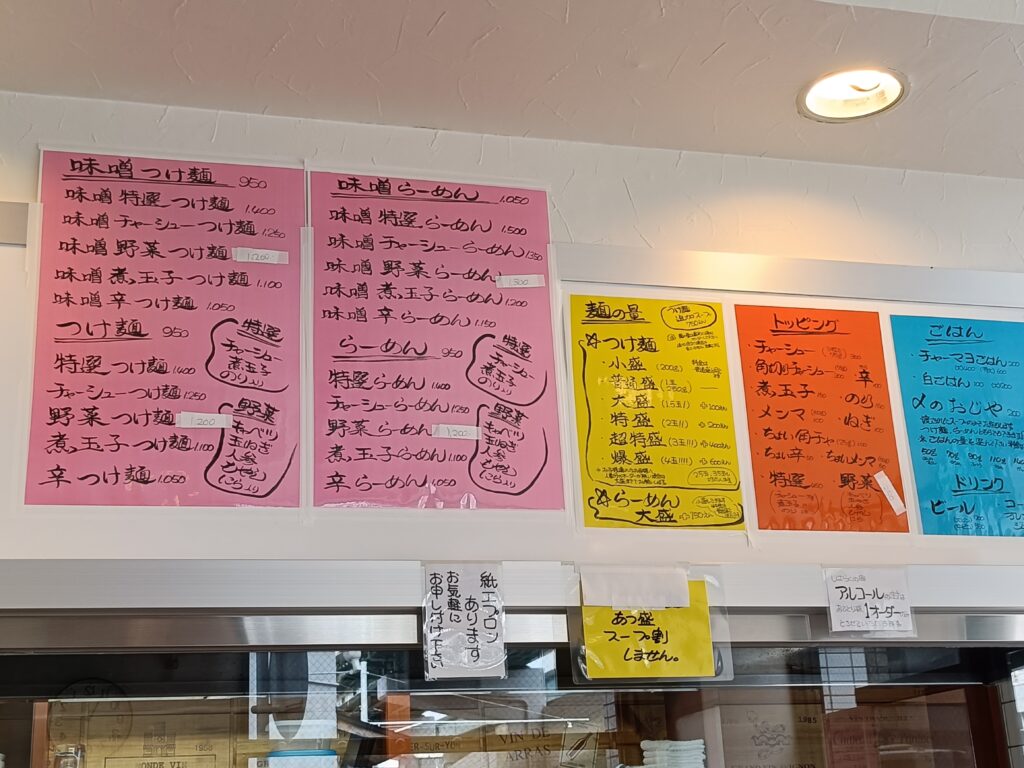 味噌つけ麺 950
味噌 特選 つけ麺 1.400
味噌 チャーシューつけ麺 1.250
味噌 野菜 つけ麺 1.200
味噌 煮玉子 つけ麺 1.100
味噌 辛 つけ麺 1.050
つけ麺 950
特選 つけ麺 1.400
チャーシュー つけ麺 1.250
野菜 つけ麺 1.200
煮玉子 つけ麺 1.100
辛 つけ麺 1.050
特選
チャーシュー
煮玉子
のり
野菜
キャベツ
玉ねぎ
人参
もやし
味噌らーめん 1.050
味噌 特選 らーめん 1.500
味噌 チャーシューらーめん 1.350
味噌 野菜 らーめん 1.300
味噌 煮玉子 らーめん 1.200
味噌 辛 らーめん 1.150
らーめん 950
特選らーめん 1.400
チャーシューらーめん 1.250
野菜 らーめん 1.200
煮玉子 らーめん 1.100
辛 らーめん 1.050
特選
チャーシュー
煮玉子
のり
野菜
キャベツ
玉ねぎ
人参
もやし
麺の量
つけ麺
小盛 (200g)
普通盛
大盛 (1.5玉) 100
特盛 (2玉) 200
超特盛 (3玉) 400
爆盛 (4玉) 600
らーめん
大盛 150
トッピング
・チャーシュー
・角切りチャーシュー
・煮玉子
・メンマ
・ちょい角チャ
・ちょい辛
・特選
チャーシュー
煮玉子
のり
・辛
・のり
・ねぎ
・ちょいメンマ
・野菜
ごはん
・チャーマヨごはん 200
・白ごはん 100
〆のおじや 200
50g 70g 90g 110g
ドリンク
ビール
紙エプロン
あります
お気軽に
お申し付け下さい
あつ盛
スープ割
しません。
アルコールの注文は
1オーダー
1985
VIN DE
ARRAS